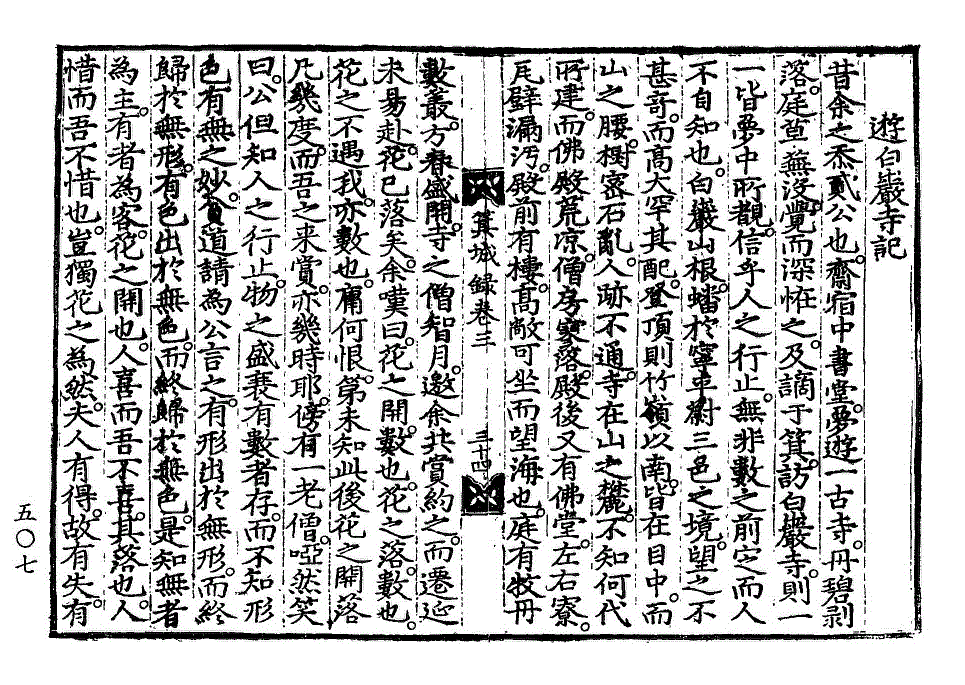 遊白巖寺記
昔余之忝貳公也。齋宿中書堂。夢遊一古寺。丹碧剥
落。庭莒蕪沒。覺而深恠之。及謫于箕。訪白巖寺。則一
一皆夢中所覩。信乎人之行止。無非數之前定。而人
不自知也。白巖山根。蟠於寧車蔚三邑之境。望之不
甚奇。而高大罕其配。登頂則竹嶺以南。皆在目中。而
山之腰。樹密石亂。人跡不通。寺在山之麓。不知何代
所建。而佛殿荒凉。僧房寥落。殿後又有佛堂。左右寮。
瓦壁漏汚。殿前有樓。高敞可坐而望海也。庭有牧丹
箕城錄卷三
三十四
數叢。方春盛開。寺之僧智月。邀余共賞約之。而遷延
未易赴。花已落矣。余嘆曰。花之開。數也。花之落。數也。
花之不遇我。亦數也。庸何恨。第未知此後花之開落
凡幾度。而吾之来賞。亦幾時耶。傍有一老僧。啞然笑
曰。公但知人之行止。物之盛衰有數者存。而不知形
色有無之妙。貧道請為公言之。有形出於無形。而終
歸於無形。有色出於無色。而終歸於無色。是知無者
為主。有者為客。花之開也。人喜而吾不喜。其落也。人
惜而吾不惜也。豈獨花之為然。夫人有得。故有失。有
五〇七